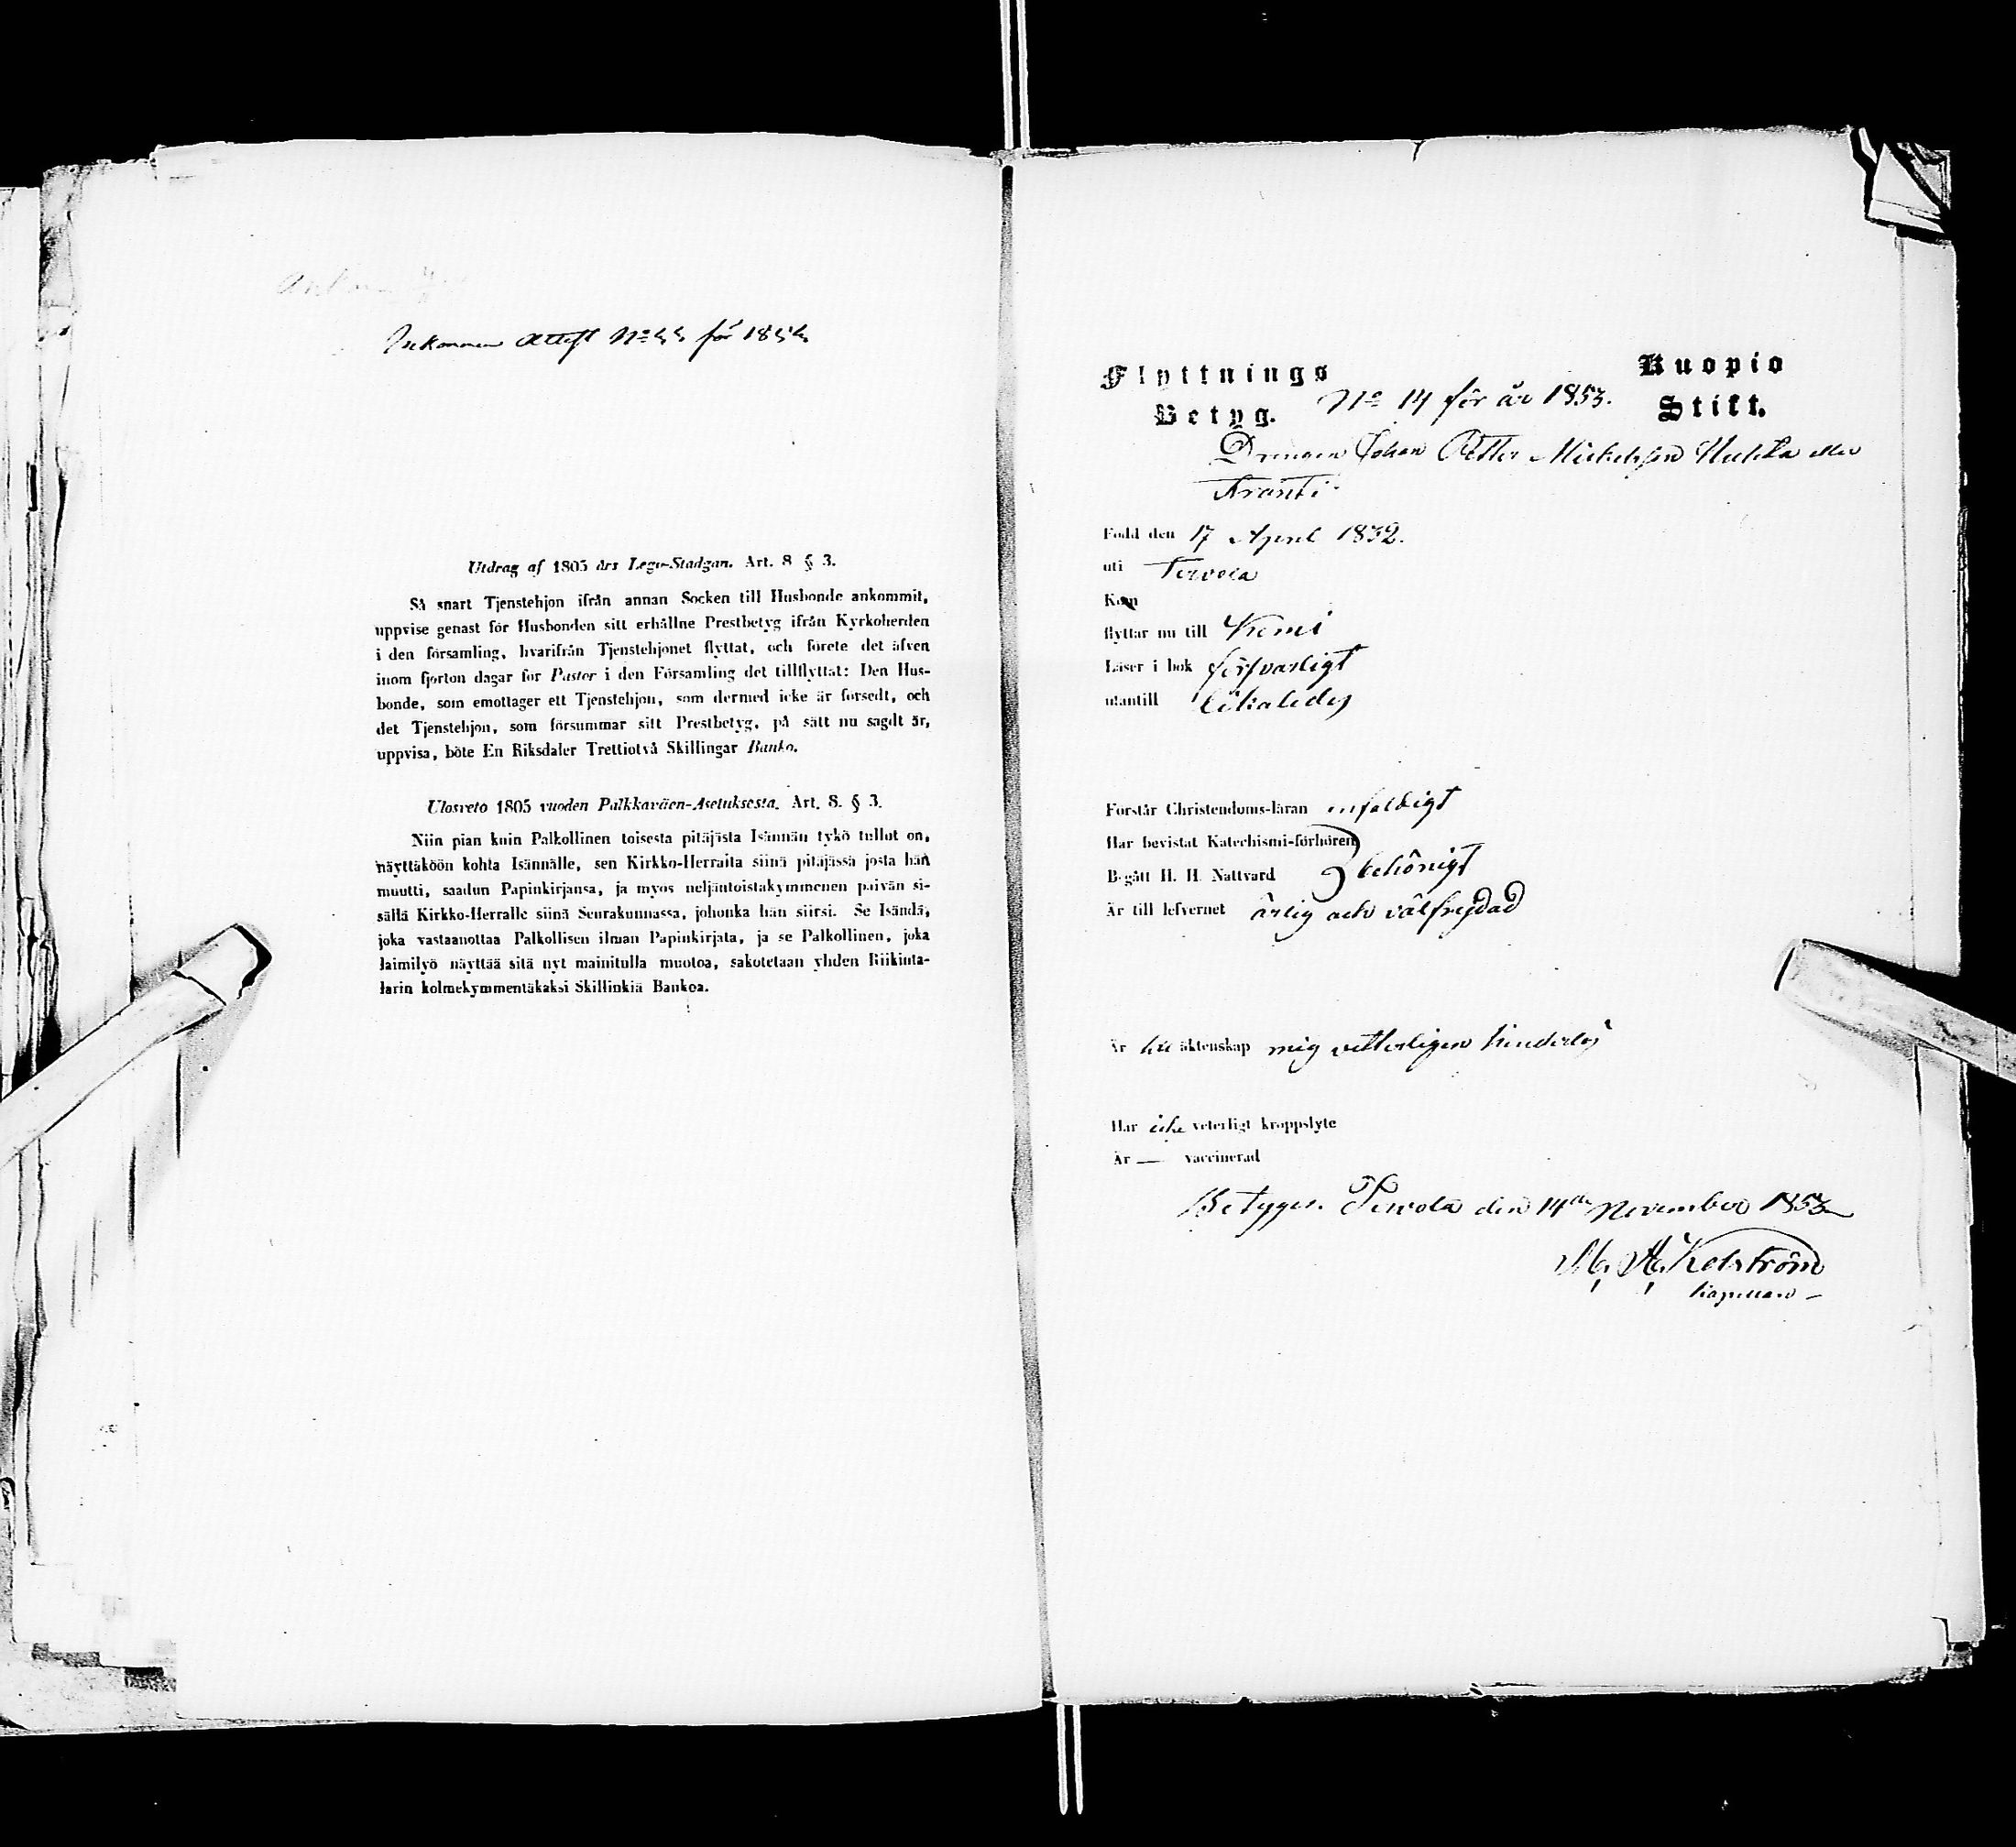 Inkommen Attest No 44 för 1854
Utdrag af 1805 års Lego-Stadgan. Art. 8 § 3.
Så snart Tjenstehjon ifrån annan Socken till Husbonde ankommit,
uppvise genast för Husbonden sitt erhållne Prestbetyg ifrån Kyrkoherden
i den församling, hvarifrån Tjenstehjonet flyttat, och förete det äfven
inom fjorton dagar för Pastor i den Församling det tillflyttat: Den Hus-
bonde, som emottager ett Tjenstehjon, som dermed icke är försedt, och
det Tjenstehjon, som försummar sitt Prestbetyg, på sätt nu sagdt är,
uppvisa, böte En Riksdaler Trettiotvå Skillingar Banko.
Ulosveto 1805 vuoden Palkkaväen-Asetuksesta. Art. 8. § 3.
Niin pian kuin Palkollinen toisesta pitäjästä Isännän tykö tullut on,
näyttäköön kohta Isännälle, sen Kirkko-Herralta siinä pitäjässä josta hän
muutti, saadun Papinkirjansa, ja myös neljäntoistakymmenen päivän si-
sällä Kirkko-Herralle siinä Seurakunnassa, johonka hän siirsi. Se Isändä,
joka vastaanottaa Palkollisen ilman Papinkirjata, ja se Palkollinen, joka
laimilyö näyttää sitä nyt mainitulla muotoa, sakotetaan yhden Riikinta-
larin kolmekymmentäkaksi Skillinkiä Bankoa.
Flyttnings Kuopio
Betyg. No 14 för år 1853. Stift.
Drengen Johan Petter Mickelsson Hukka eller
Kranti.
Född den 17 April 1832.
uti Tervola
Kom
flyttar nu till Kemi
Läser i bok försvarligt
utantill likaledes
Förstår Christendoms-läran enfaldigt
Har bevistat Katechismi-förhören
Begått H. H. Nattvard behörigt
Är till lefvernet ärlig och välfrejdad
Är till äktenskap mig vetterligen hinderlös
Har icke veterligt kroppslyte
Är — vaccinerad
Betygar. Tervola den 14de November 1853
Kapellan